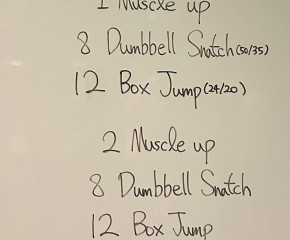 1 Muscle up
8 Dumbbell Snatch (50/35)
12 Box Jump (24/20)
2 Muscle up
8 Dumbbell Snatch
12 Box Jump